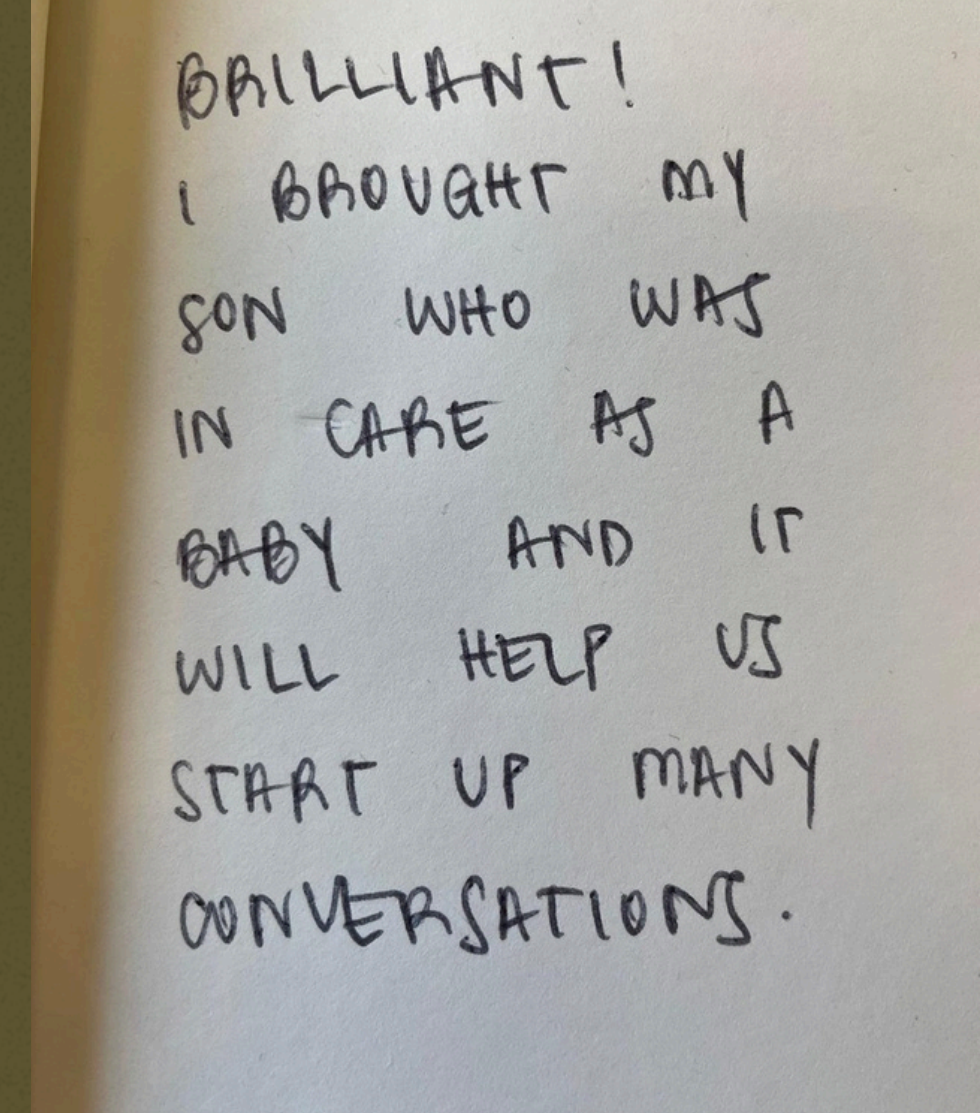 BRILLIANT!
I BROUGHT MY
SON WHO WAS
IN CARE AS A
BABY AND IT
WILL HELP US
START UP MANY
CONVERSATIONS.